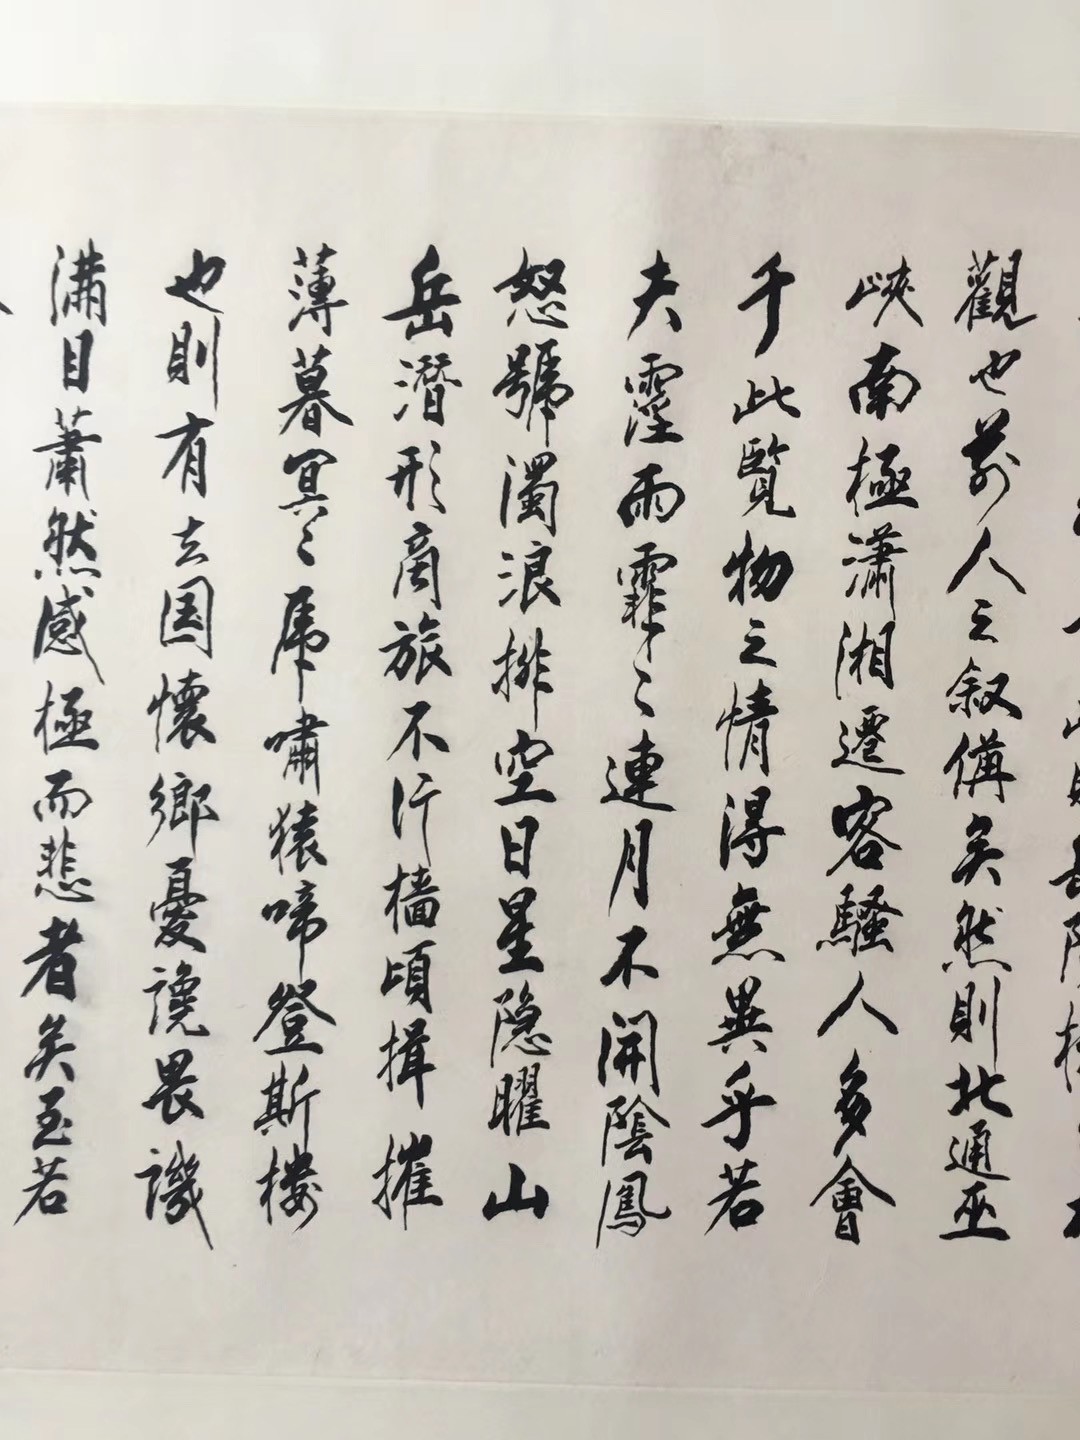 觀也前人之叙備矣然則北通巫
峽南極瀟湘遷容騷人多會
于此覽物之情得無異乎若
夫霪雨霏〻連月不開陰鳳
怒號濁浪排空日星隐曜山
岳潛形商旅不行檣頃揖摧
薄暮冥〻虎嘯猿啼登斯樓
也則有去国懷鄉憂讒畏譏
滿目蕭然感極而悲者矣至若